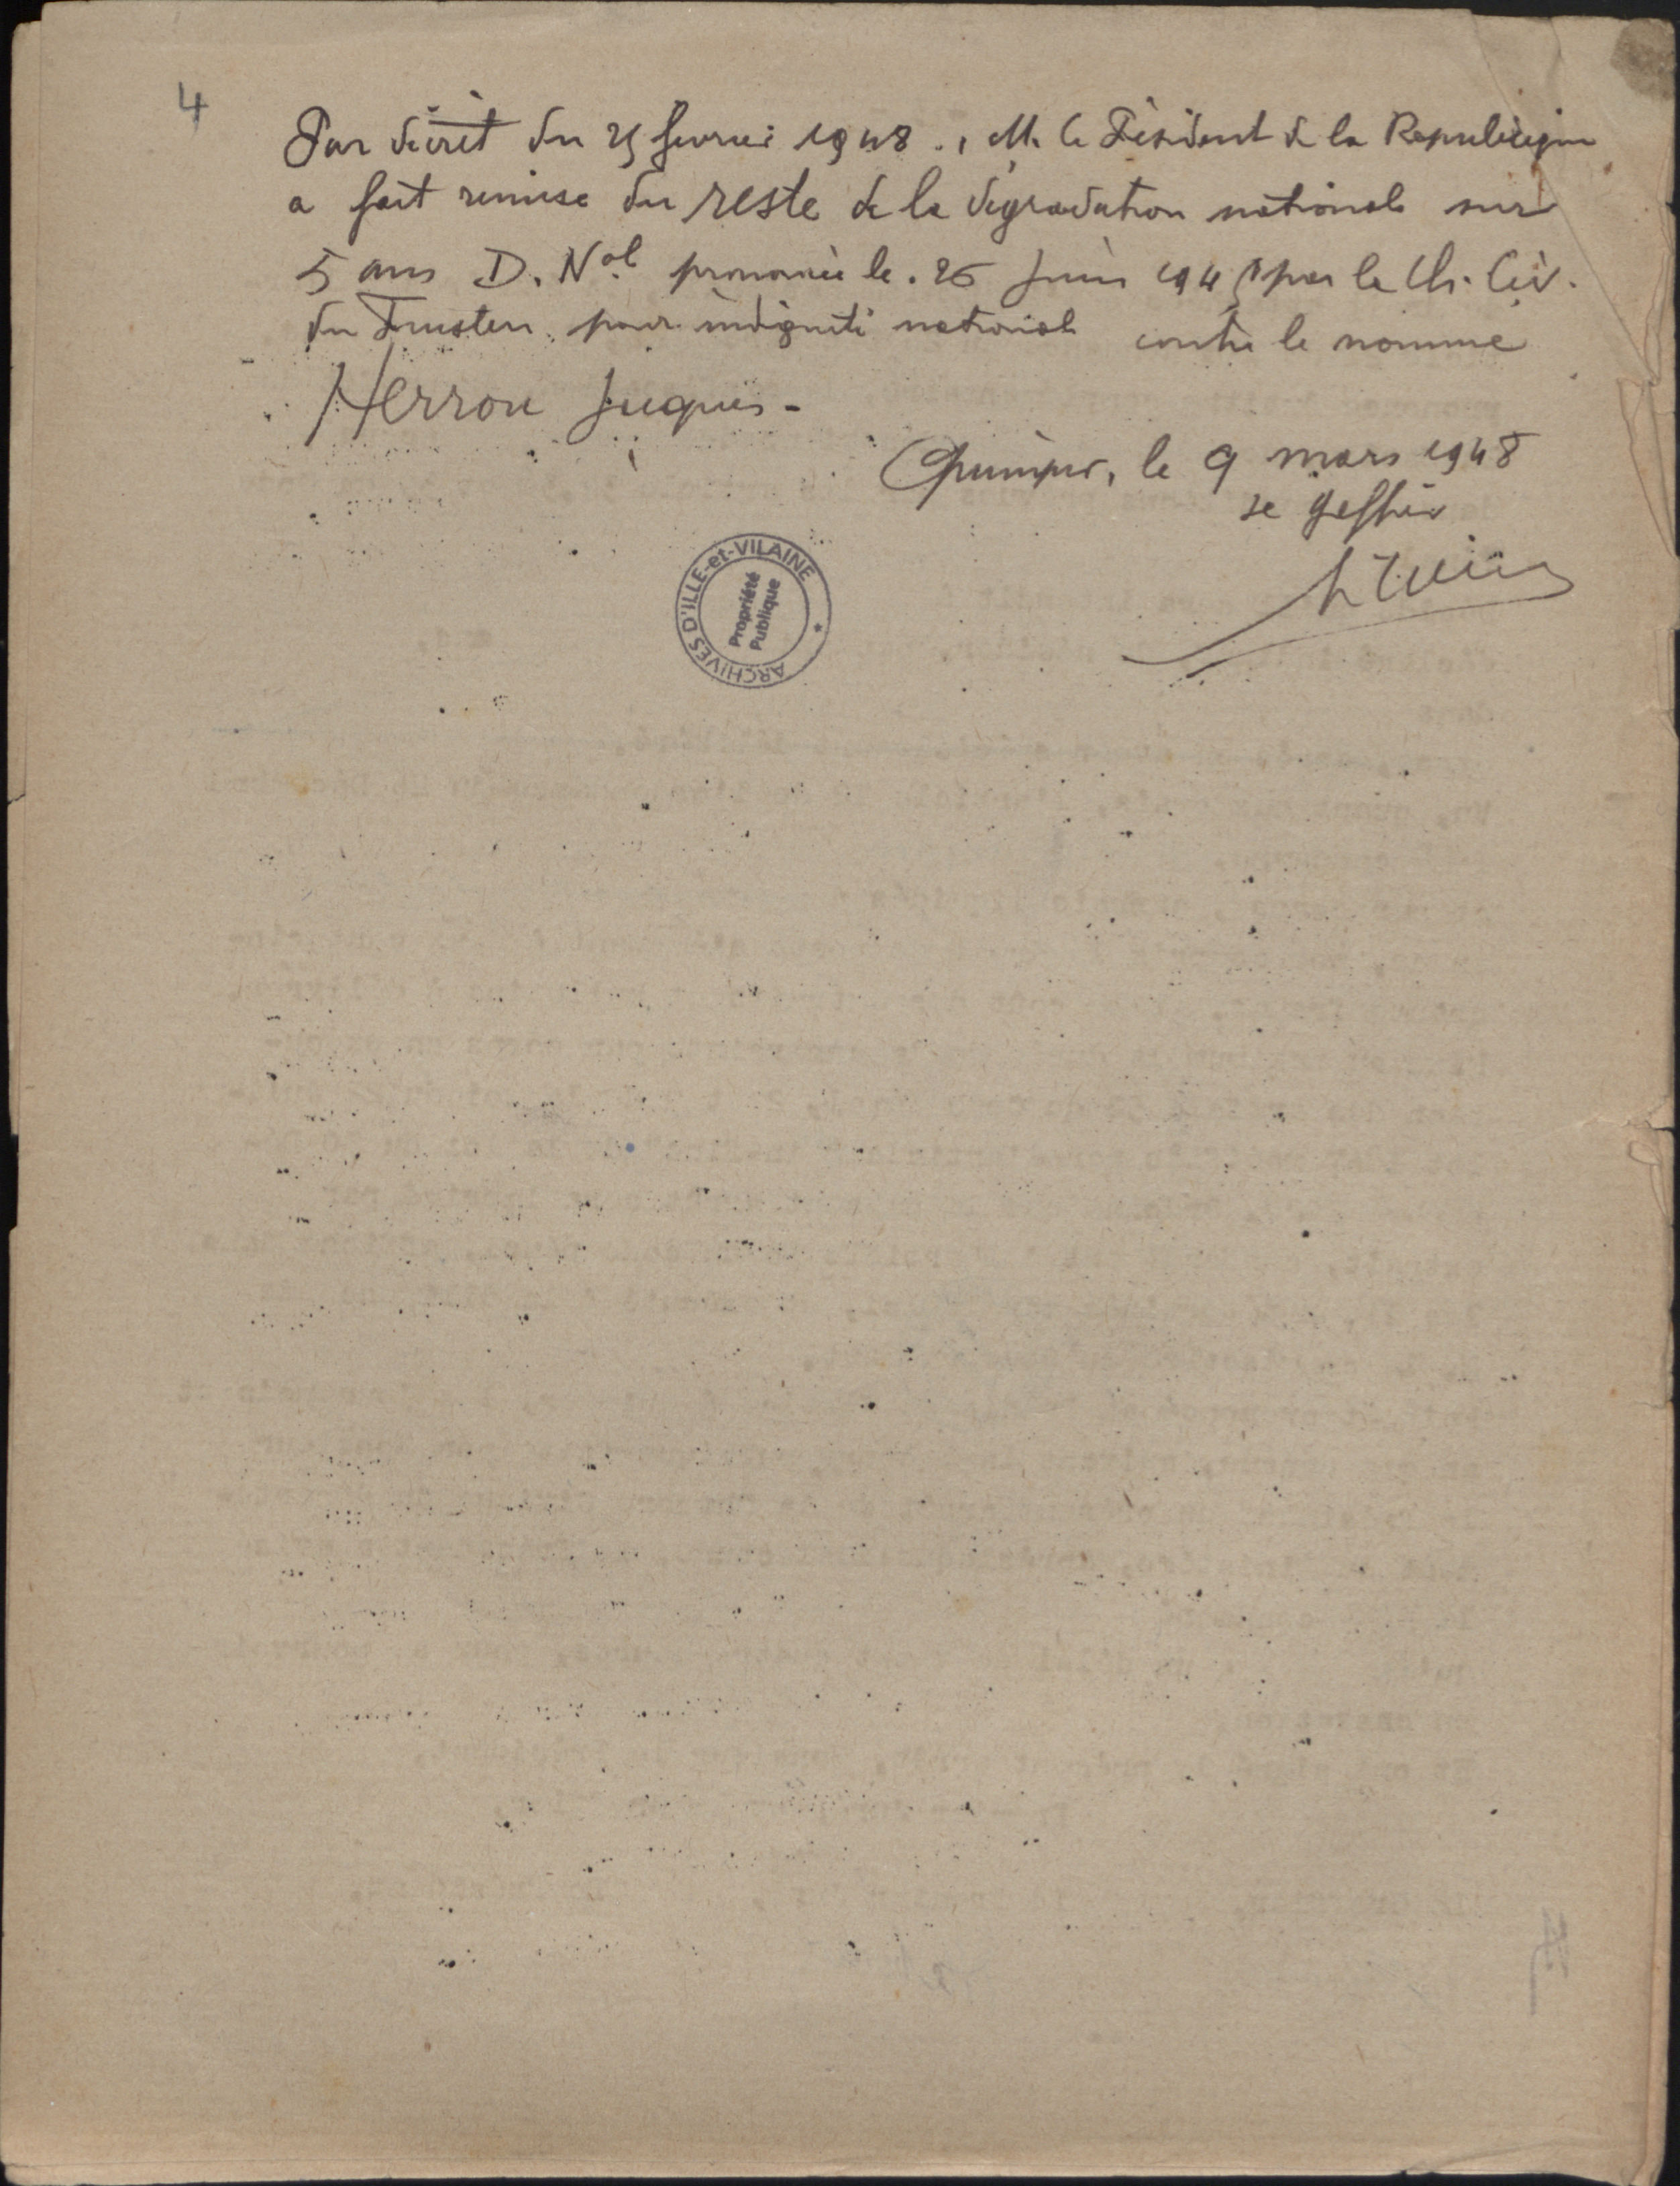 4
Par décret du 25 février 1948, M. le Président de la République
a fait remise du reste de la dégradation nationale sur
5 ans D. Nale prononcée le 26 Juin 1945 par la Ch. Civ.
du Finistère pour indignité nationale contre le nommé
Herrou Jacques -
Quimper, le 9 mars 1948
Le Greffier
ARCHIVES D'ILLE-et-VILAINE *
Propriété
Publique